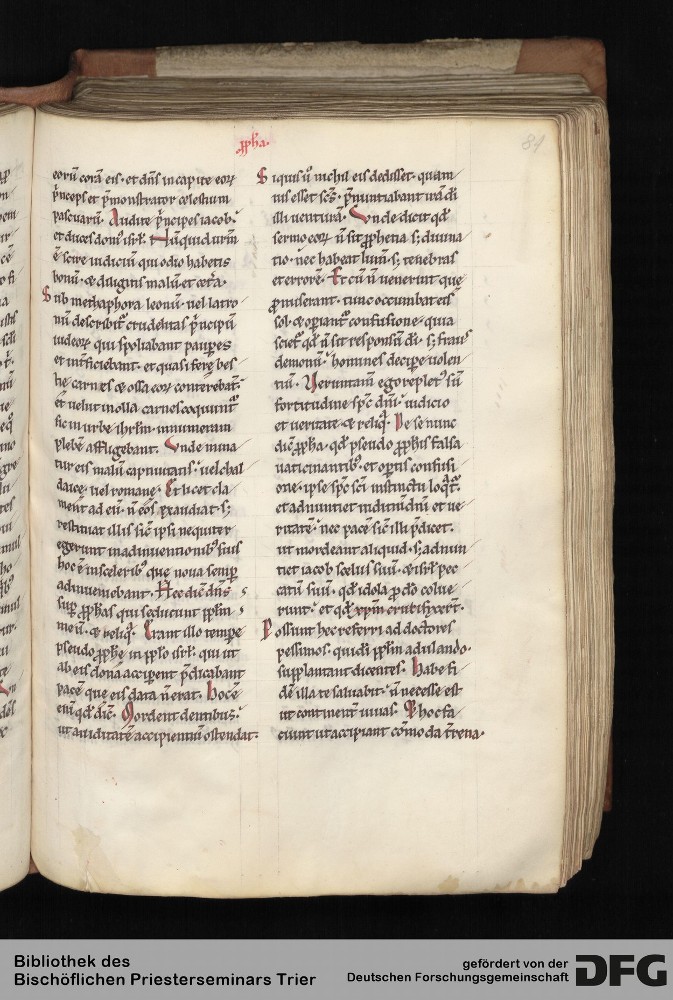 ꝓph̅a.
84
eorū corā eis· et dn̅s in capite eoꝝ
p̅nceps et p̅monstrator celestium
pascuarū. Audite p̅ncipes iacob.
et duces dom' isrl̅. Nūquid urm̅
ē scire iudiciū qui odio habetis
bonū· & diligitis malū et cet̅a.
Sub methaphora leonū· uel latro
nū describit̅ crudelitas p̅ncipū
iudeoꝝ qui spoliabant paupes
et int̅ficiebant· et quasi fere bes
tie carnes & ossa eoꝝ conterebāt.
et uelut in olla carnes coquunt̅
sic in urbe ihrl̅m· innumeram
plebē affligebant. Unde mina
tur eis malū captiuitatis· uel chal
daice· uel romane. Et licet cla
ment ad eū· n̅ eos exaudiat· s;
restituat illis sic̅ ipsi nequiter
egerunt in adinuentionib; suis
hoc ē in sceleribꝰ que noua semp
adinueniebant. Hec dic̅ dn̅s
sup ꝓphas qui seducunt pplm̅
meū· & reliq̅. Erant illo tempe
pseudo ꝓphe in pplo isrl̅· qui ut
ab eis dona acciperent p̅dicabant
pacē que eis data n̅ erat. Hoc ē
eni̅ qd̅ dic̅. Mordent dentibus.
ut auiditatē accipientiū ostendat.
Siquis u̅ nichil eis dedisset· quam
uis esset sc̅s· p̅nuntiabant irā di̅
illi uenturā. Unde dicit qd̅
sermo eoꝝ n̅ sit ꝓphetia s; diuina
tio· nec habeat lum̅· s; tenebras
et errorē. Et cū n̅ uenerint que
ꝓmiserant· tunc occumbat eis
sol· & opiant̅ confusione· quia
sciet̅ qd̅ n̅ sit responsū di̅· s; fraus
demonū· homines decipe uolen
tiū. Ueruntam̅ ego replet' sū
fortitudine sp̅c dn̅i· iudicio
et ueritate· & reliq̅. De se nunc
dic̅ ꝓpha· qd̅ pseudo ꝓphis falsa
uaticinantib;· et optis confusi
one· ipse sp̅c sc̅i instinctu loq̅t̅.
et adnuntiet iudiciū dn̅i et ue
ritatē· nec pacē sic̅ illi p̅dicet.
ut mordeant aliquid· s; adnun
tiet iacob scelus suū· & isrl̅ pec
catū suū· qd̅ idola ꝓ do̅ colue
runt· et qd̅ xp̅m crucifixert̅.
Possunt hec referri ad doctores
pessimos· qui di̅ pplm̅ adulando·
supplantant dicentes. Habe fi
dē illa te saluabit· n̅ necesse est
ut continent̅ uiuas. & hoc fa
ciunt ut accipiant cōmoda t̅rena.
Bibliothek des
Bischöflichen Priesterseminars Trier
gefördert von der
Deutschen Forschungsgemeinschaft
DFG